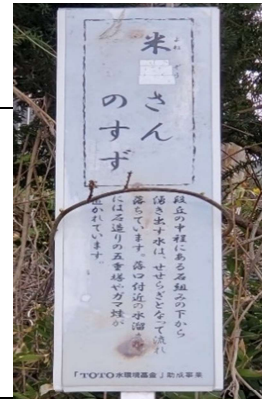 米 さん
のすず
段丘の中程にある石組みの下から
湧き出す水は、せせらぎとなって流れ
落ちています。落口付近の水溜
には石造りの五重塔やガマ蛙が
置かれています。
「TOTO水環境基金」助成事業